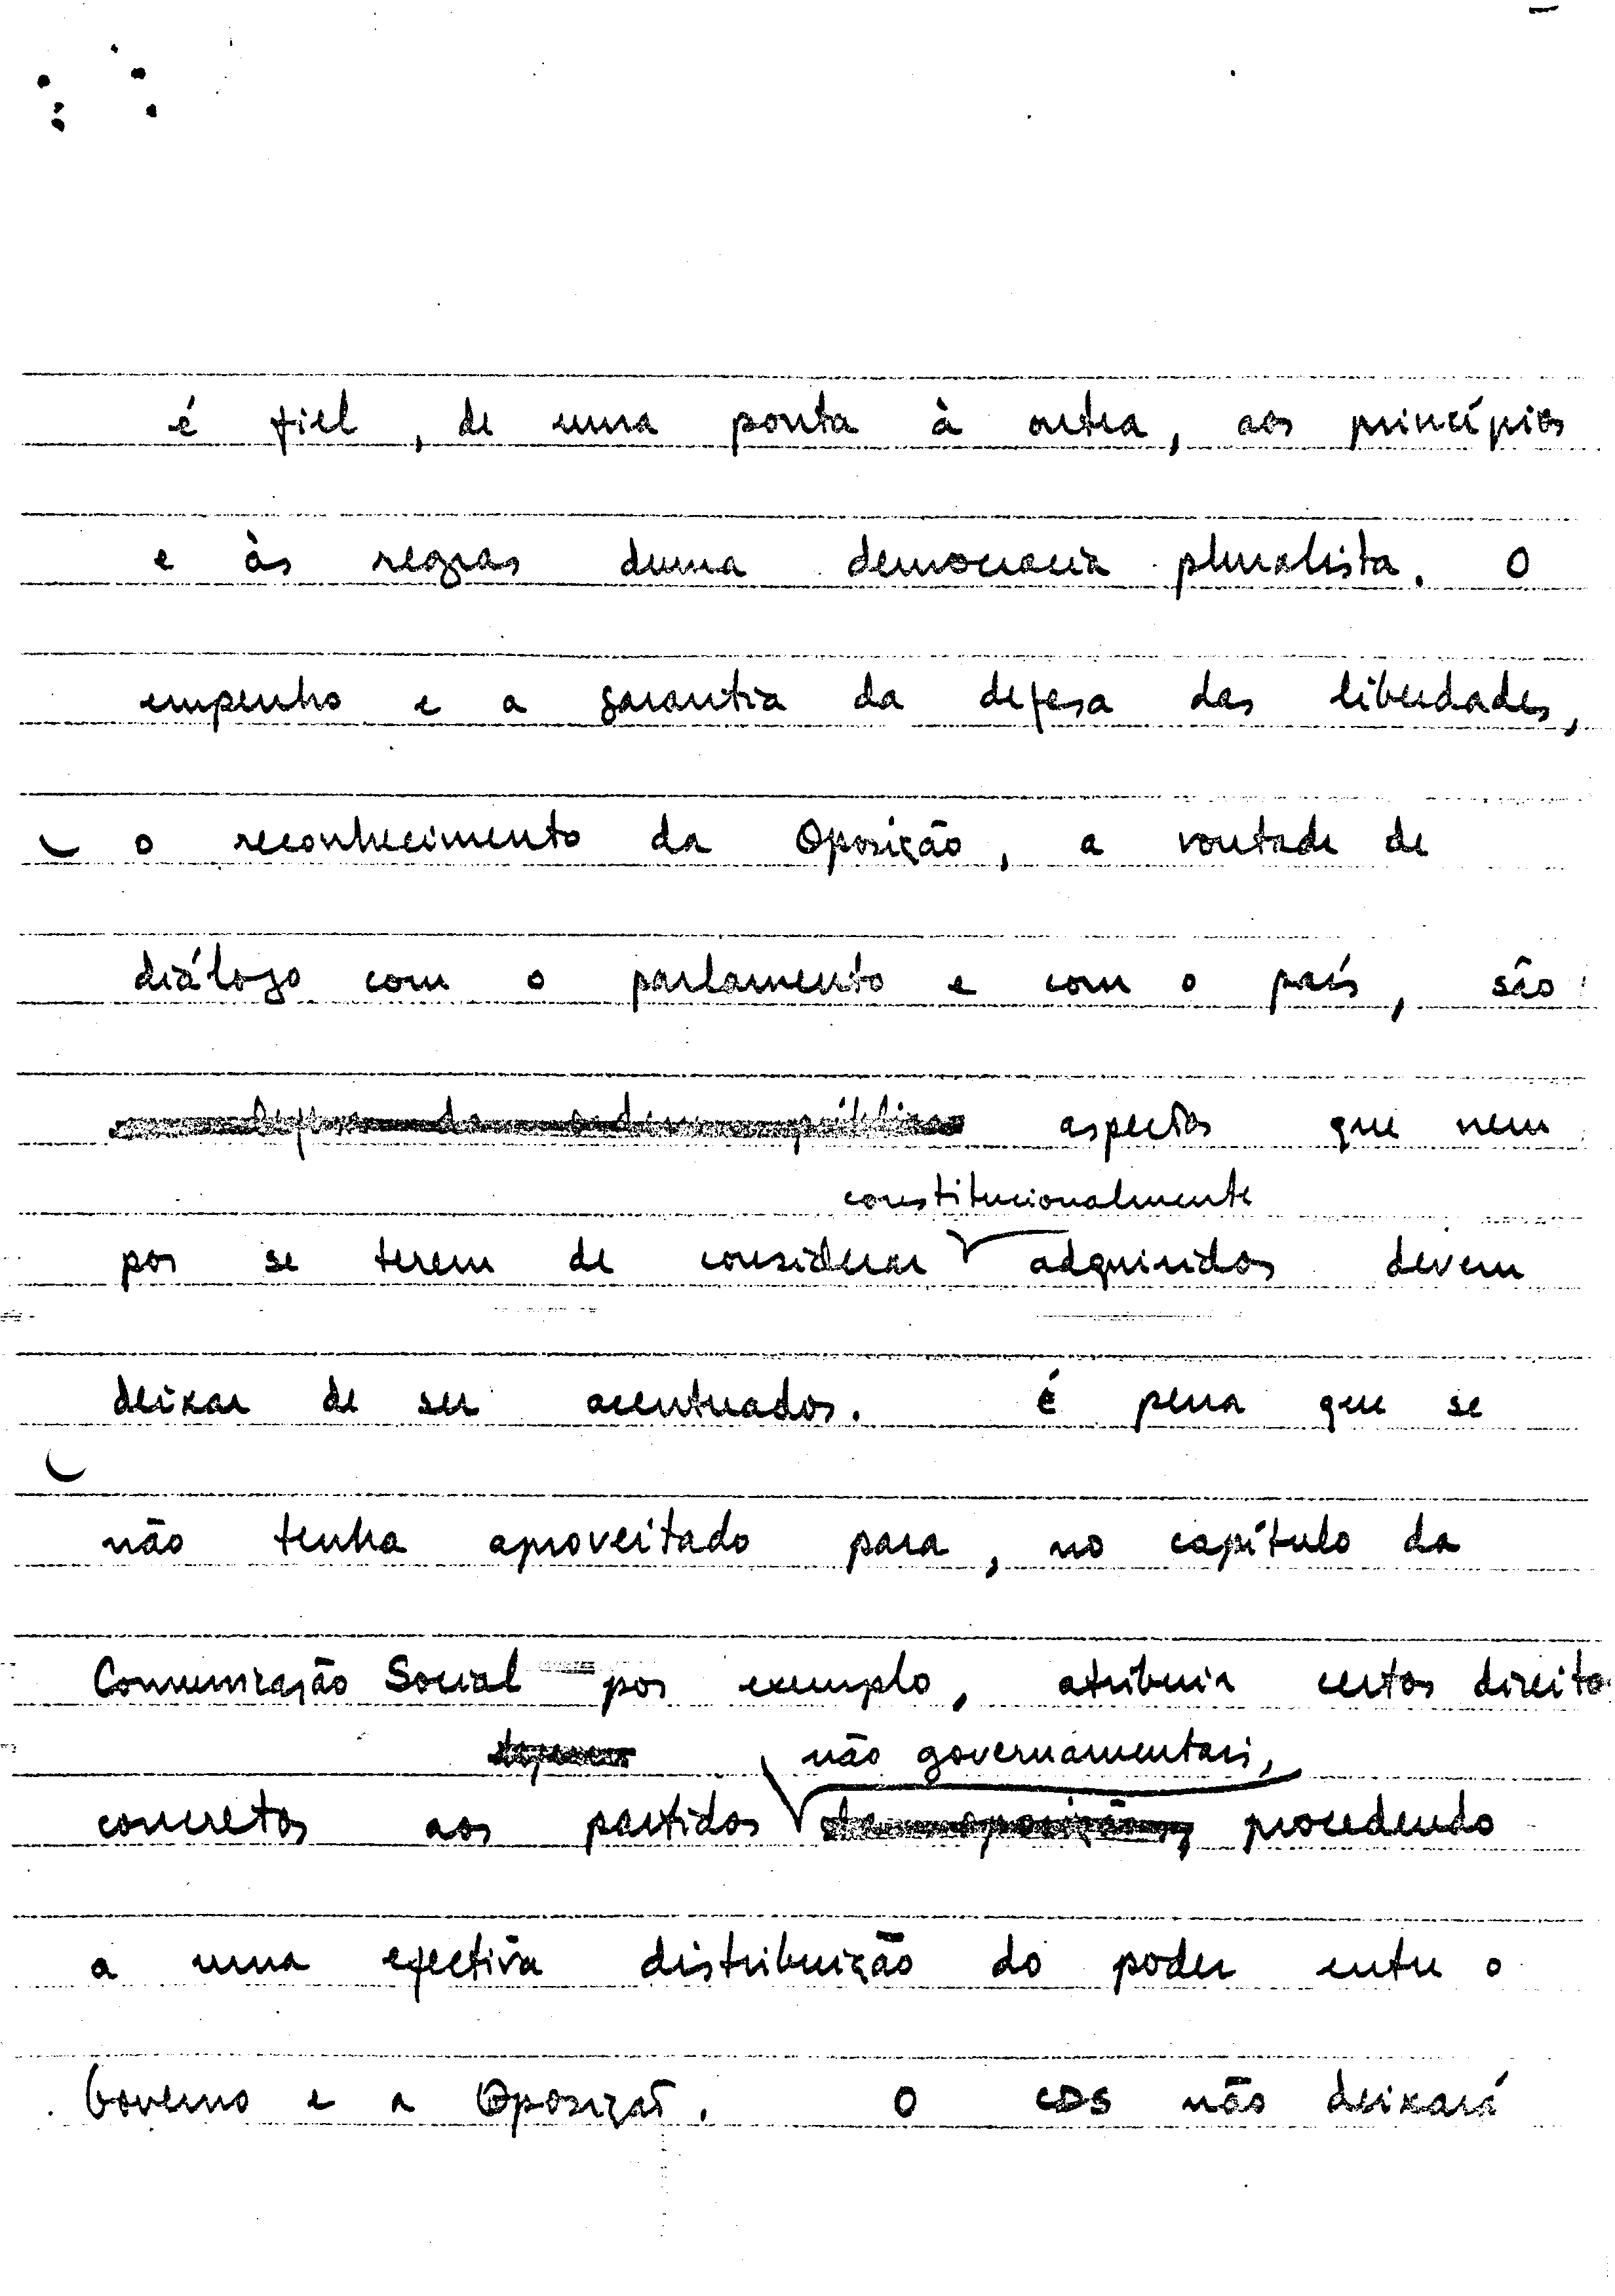 é fiel, de uma ponta à outra, aos princípios
e às regras duma democracia pluralista. O
empenho e a garantia da defesa das liberdades,
o reconhecimento da Oposição, a vontade de
diálogo com o parlamento e com o país, são
aspectos que nem
constitucionalmente
por se terem de considerar adquiridos devem
deixar de ser acentuados. É pena que se
não tenha aproveitado para, no capítulo da
Comunicação Social por exemplo, atribuir certos direitos
não governamentais,
concretos aos partidos da oposição, procedendo
a uma efectiva distribuição do poder entre o
Governo e a Oposição. O CDS não deixará